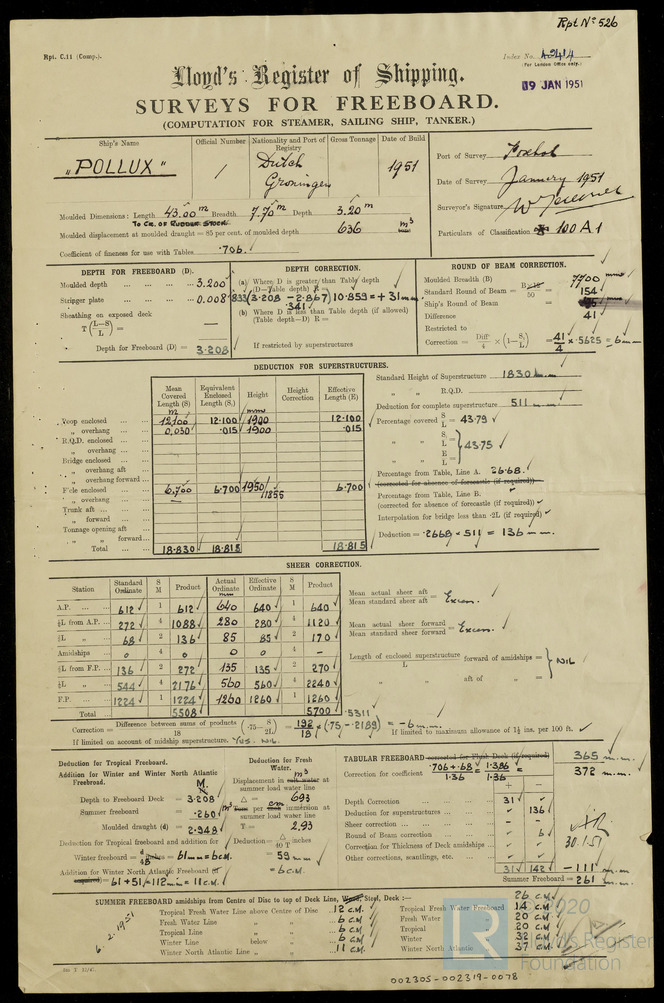 Rpt Nº 526
Rpt. C.11 (Comp.).
Index No. 
(For London Office only.)
Lloyd's Register of Shipping.
09 JAN 1951
SURVEYS FOR FREEBOARD.
(COMPUTATION FOR STEAMER, SAILING SHIP, TANKER.)
Ship's Name
Official Number
Nationality and Port of Registry
Gross Tonnage
Date of Build
"POLLUX"
/
Dutch
Groningen
1951
Port of Survey Foxhol
Date of Survey January 1951
Surveyor's Signature
Particulars of Classification 100 A1
Moulded Dimensions: Length 43.00 m Breadth 7.70 m Depth 3.20 m
To CR. OF RUDDER STOCK
Moulded displacement at moulded draught = 85 per cent. of moulded depth 636 m³
Coefficient of fineness for use with Tables .706.
DEPTH FOR FREEBOARD (D).
Moulded depth 3.200
Stringer plate 0.008
Sheathing on exposed deck
T (L-S / L) = —
Depth for Freeboard (D) = 3.208
DEPTH CORRECTION.
(a) Where D is greater than Table depth
(D—Table depth) R =
.833 (3.208 - 2.867) 10.859 = + 31 mm
341
(b) Where D is less than Table depth (if allowed)
(Table depth—D) R =
If restricted by superstructures
ROUND OF BEAM CORRECTION.
Moulded Breadth (B) 7700 mm
Standard Round of Beam = B×12 / 50 = 154
Ship's Round of Beam = mm
Difference 41
Restricted to
Correction = Diff / 4 × (1 - S₁ / L) = 41 / 4 × .5625 = 6 mm
DEDUCTION FOR SUPERSTRUCTURES.
Mean Covered Length (S)
Equivalent Enclosed Length (S₁)
Height
Height Correction
Effective Length (E)
m
mm
Poop enclosed 12.100 12.100 1900 12.100
„ overhang 0.030 .015 1900 .015
R.Q.D. enclosed
„ overhang
Bridge enclosed
„ overhang aft
„ overhang forward
F'cle enclosed 6.700 6.700 1950/1855 6.700
„ overhang —
Trunk aft
„ forward
Tonnage opening aft
„ „ forward
Total 18.830 18.815 18.815
Standard Height of Superstructure 1830 m.m.
„ „ R.Q.D.
Deduction for complete superstructure 511 m.m.
Percentage covered S / L = 43.79
„ „ S₁ / L =
„ „ E / L = } 43.75
Percentage from Table, Line A. 26.68.
(corrected for absence of forecastle (if required))
Percentage from Table, Line B.
(corrected for absence of forecastle (if required))
Interpolation for bridge less than ·2L (if required)
Deduction = .2668 × 511 = 136 m.m.
SHEER CORRECTION.
Station
Standard Ordinate
S M
Product
Actual Ordinate
Effective Ordinate
S M
Product
mm
A.P. 612 1 612 640 640 1 640
⅙L from A.P. 272 4 1088 280 280 4 1120
⅓L „ 68 2 136 85 85 2 170
Amidships 0 4 0 0 0 4 —
⅓L from F.P. 136 2 272 135 135 2 270
⅙L „ 544 4 2176 560 560 4 2240
F.P. 1224 1 1224 1260 1260 1 1260
Total 5508 5700
Mean actual sheer aft
Mean standard sheer aft = Excess.
Mean actual sheer forward
Mean standard sheer forward = Excess.
Length of enclosed superstructure forward of amidships =
L
„ „ aft of „ = } NIL
.5311
Correction = Difference between sums of products / 18 (·75 - S / 2L) = 192 / 18 × (.75 - .2189) = - 6 m.m.
If limited on account of midship superstructure. Yes. NIL
If limited to maximum allowance of 1½ ins. per 100 ft.
Deduction for Tropical Freeboard.
Addition for Winter and Winter North Atlantic Freeboard.
M.
Depth to Freeboard Deck = 3.208
Summer freeboard = .260
Moulded draught (d) = 2.948
Deduction for Tropical freeboard and addition for
Winter freeboard = d / 48 = 61 mm = 6 cM.
Addition for Winter North Atlantic Freeboard (if required) = 61 + 51 = 112 mm = 11 cM.
Deduction for Fresh Water.
Displacement in m³ at summer load water line
Δ = 693
m³ per cm immersion at summer load water line
T = 2.93
Deduction = Δ / 40 T inches
= 59 mm
= 6 cM.
TABULAR FREEBOARD corrected for Flush Deck (if required) 365 m.m.
Correction for coefficient .706 + .68 / 1.36 = 1.386 / 1.36 = 372 m.m.
+ -
Depth Correction 31
Deduction for superstructures 136
Sheer correction - -
Round of Beam correction 6
Correction for Thickness of Deck amidships
Other corrections, scantlings, etc.
31 142 - 111 m.m.
Summer Freeboard = 261 m.m.
30.1.51
SUMMER FREEBOARD amidships from Centre of Disc to top of Deck Line, Wood, Steel, Deck :— 26 c.M.
Tropical Fresh Water Line above Centre of Disc 12 c.M.
Fresh Water Line „ „ 6 c.M.
Tropical Line „ „ 6 c.M.
Winter Line below „ 6 c.M.
Winter North Atlantic Line „ „ 11 c.M.
Tropical Fresh Water Freeboard 14 c.M.
Fresh Water „ 20 c.M.
Tropical „ 20 c.M.
Winter „ 32 c.M.
Winter North Atlantic „ 37 c.M.
6 2.1951
2020
LR
Lloyd's Register
Foundation
002305-002319-0078